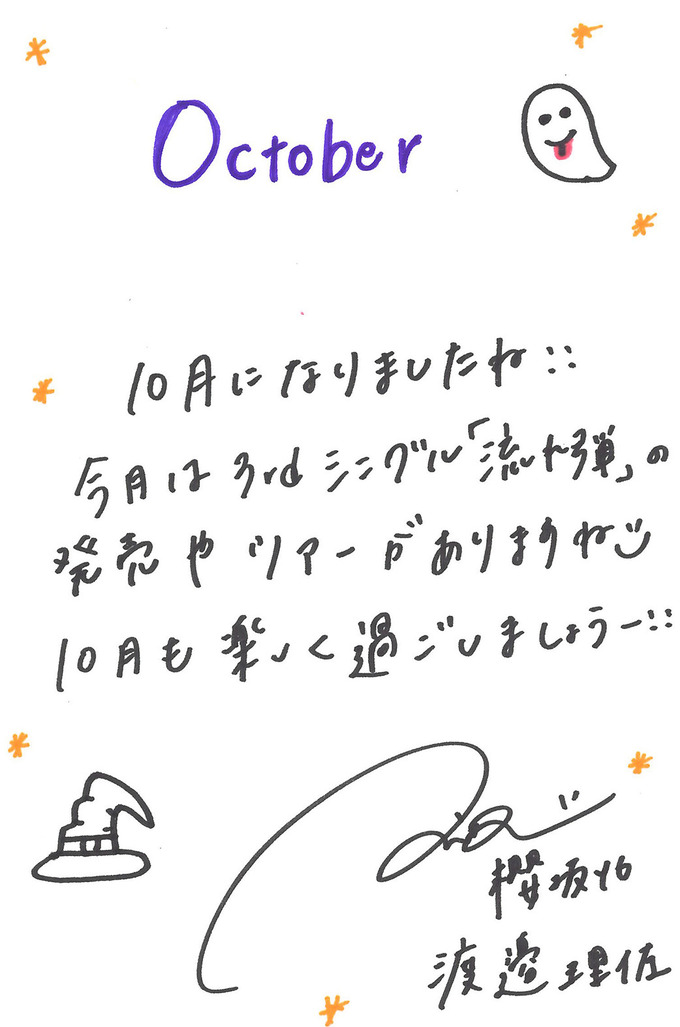 October
10月になりましたね::
今月は3rdシングル「流れ弾」の
発売やツアーがありますね
10月も楽しく過ごしましょうー::
櫻坂46
渡邉理佐